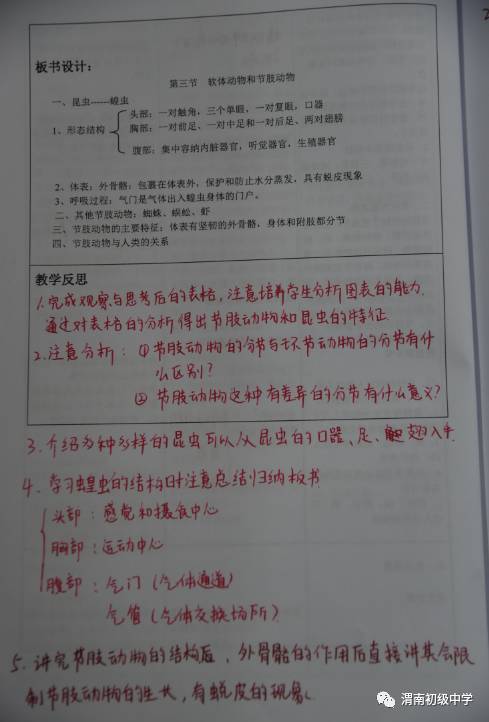 板书设计：
第三节 软体动物和节肢动物
一、昆虫------蝗虫
头部：一对触角，三个单眼，一对复眼，口器
1、形态结构 胸部：一对前足、一对中足和一对后足、两对翅膀
腹部：集中容纳内脏器官，听觉器官，生殖器官
2、体表：外骨骼：包裹在体表外，保护和防止水分蒸发，具有蜕皮现象
3、呼吸过程：气门是气体出入蝗虫身体的门户。
二、其他节肢动物：蜘蛛、蜈蚣、虾
三、节肢动物的主要特征：体表有坚韧的外骨骼，身体和附肢都分节
四、节肢动物与人类的关系
教学反思
1.完成观察与思考后的表格，注意培养学生分析图表的能力.
通过对表格的分析得出节肢动物和昆虫的特征.
2.注意分析：①节肢动物的分节与环节动物的分节有什
么区别？
②节肢动物这种有差异的分节有什么意义？
3.介绍多种多样的昆虫可以从昆虫的口器、足、翅入手
4.学习蝗虫的结构时注意总结归纳板书
头部：感觉和摄食中心
胸部：运动中心
腹部：气门（气体通道）
气管（气体交换场所）
5.讲完节肢动物的结构后，外骨骼的作用后直接讲其会限
制节肢动物的生长，有蜕皮的现象。
渭南初级中学